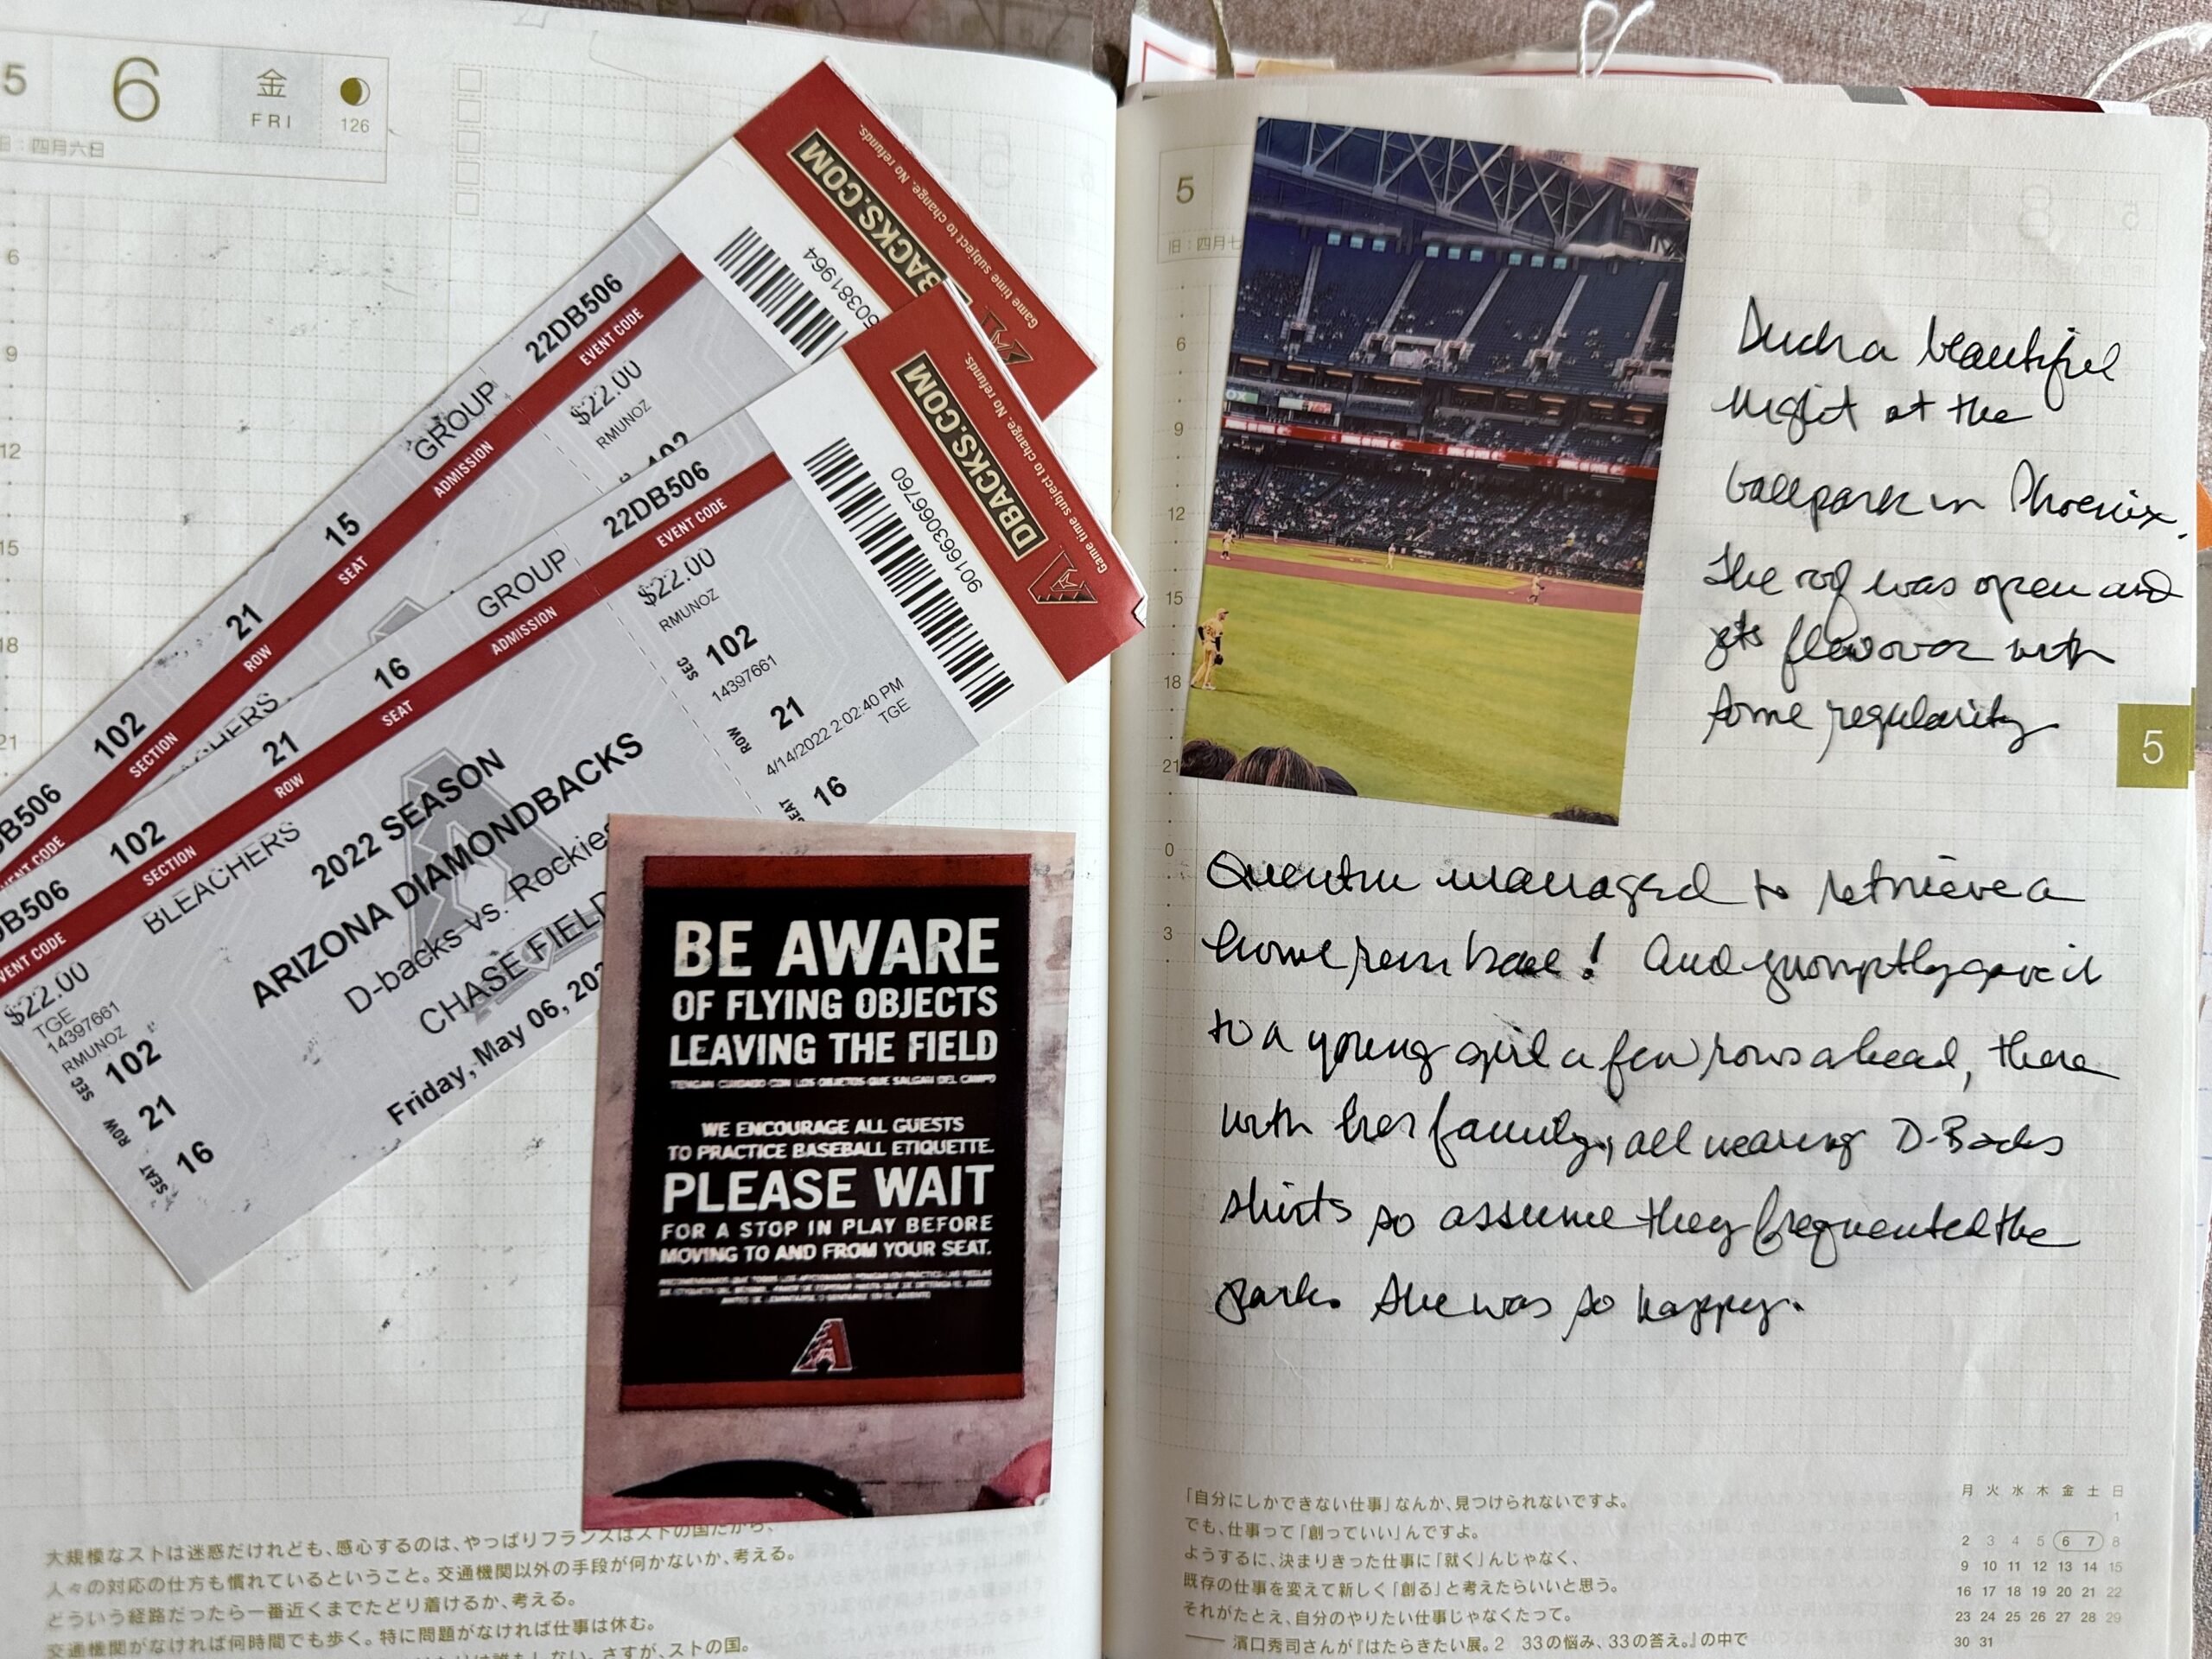 5
6
金
FRI
126
旧:四月六日
6
9
12
15
18
21
DBACKS.COM
Game time subject to change. No refunds.
50381964
22DB506
EVENT CODE
GROUP
ADMISSION
15
SEAT
21
ROW
102
SECTION
$22.00
RMUNOZ
102
DBACKS.COM
Game time subject to change. No refunds.
901663066760
22DB506
EVENT CODE
GROUP
ADMISSION
16
SEAT
21
ROW
102
SECTION
BLEACHERS
2022 SEASON
ARIZONA DIAMONDBACKS
D-backs vs. Rockies
CHASE FIELD
Friday, May 06, 202
$22.00
TGE
14397661
RMUNOZ
SEC 102
ROW 21
SEAT 16
$22.00
RMUNOZ
SEC 102
14397661
ROW 21
4/14/2022 2:02:40 PM
TGE
SEAT 16
BE AWARE
OF FLYING OBJECTS
LEAVING THE FIELD
TENGAN CUIDADO CON LOS OBJETOS QUE SALGAN DEL CAMPO
WE ENCOURAGE ALL GUESTS
TO PRACTICE BASEBALL ETIQUETTE.
PLEASE WAIT
FOR A STOP IN PLAY BEFORE
MOVING TO AND FROM YOUR SEAT.
A
大規模なストは迷惑だけれども、感心するのは、やっぱりフランスはストの国だから、
人々の対応の仕方も慣れているということ。交通機関以外の手段が何かないか、考える。
どういう経路だったら一番近くまでたどり着けるか、考える。
交通機関がなければ何時間でも歩く。特に問題がなければ仕事は休む。
さすが、ストの国。
5
旧:四月七
6
9
12
15
18
21
0
3
Such a beautiful
night at the
ballpark in Phoenix.
The roof was open and
jets flew over with
some regularity
Quentin managed to retrieve a
home run ball! And promptly gave it
to a young girl a few rows ahead, there
with her family, all wearing D-Backs
shirts so assume they frequented the
park. She was so happy.
5
「自分にしかできない仕事」なんか、見つけられないですよ。
でも、仕事って「創っていい」んですよ。
ようするに、決まりきった仕事に「就く」んじゃなく、
既存の仕事を変えて新しく「創る」と考えたらいいと思う。
それがたとえ、自分のやりたい仕事じゃなくたって。
—— 濱口秀司さんが『はたらきたい展。2 33の悩み、33の答え。』の中で
月 火 水 木 金 土 日
1
2 3 4 5 6 7 8
9 10 11 12 13 14 15
16 17 18 19 20 21 22
23 24 25 26 27 28 29
30 31